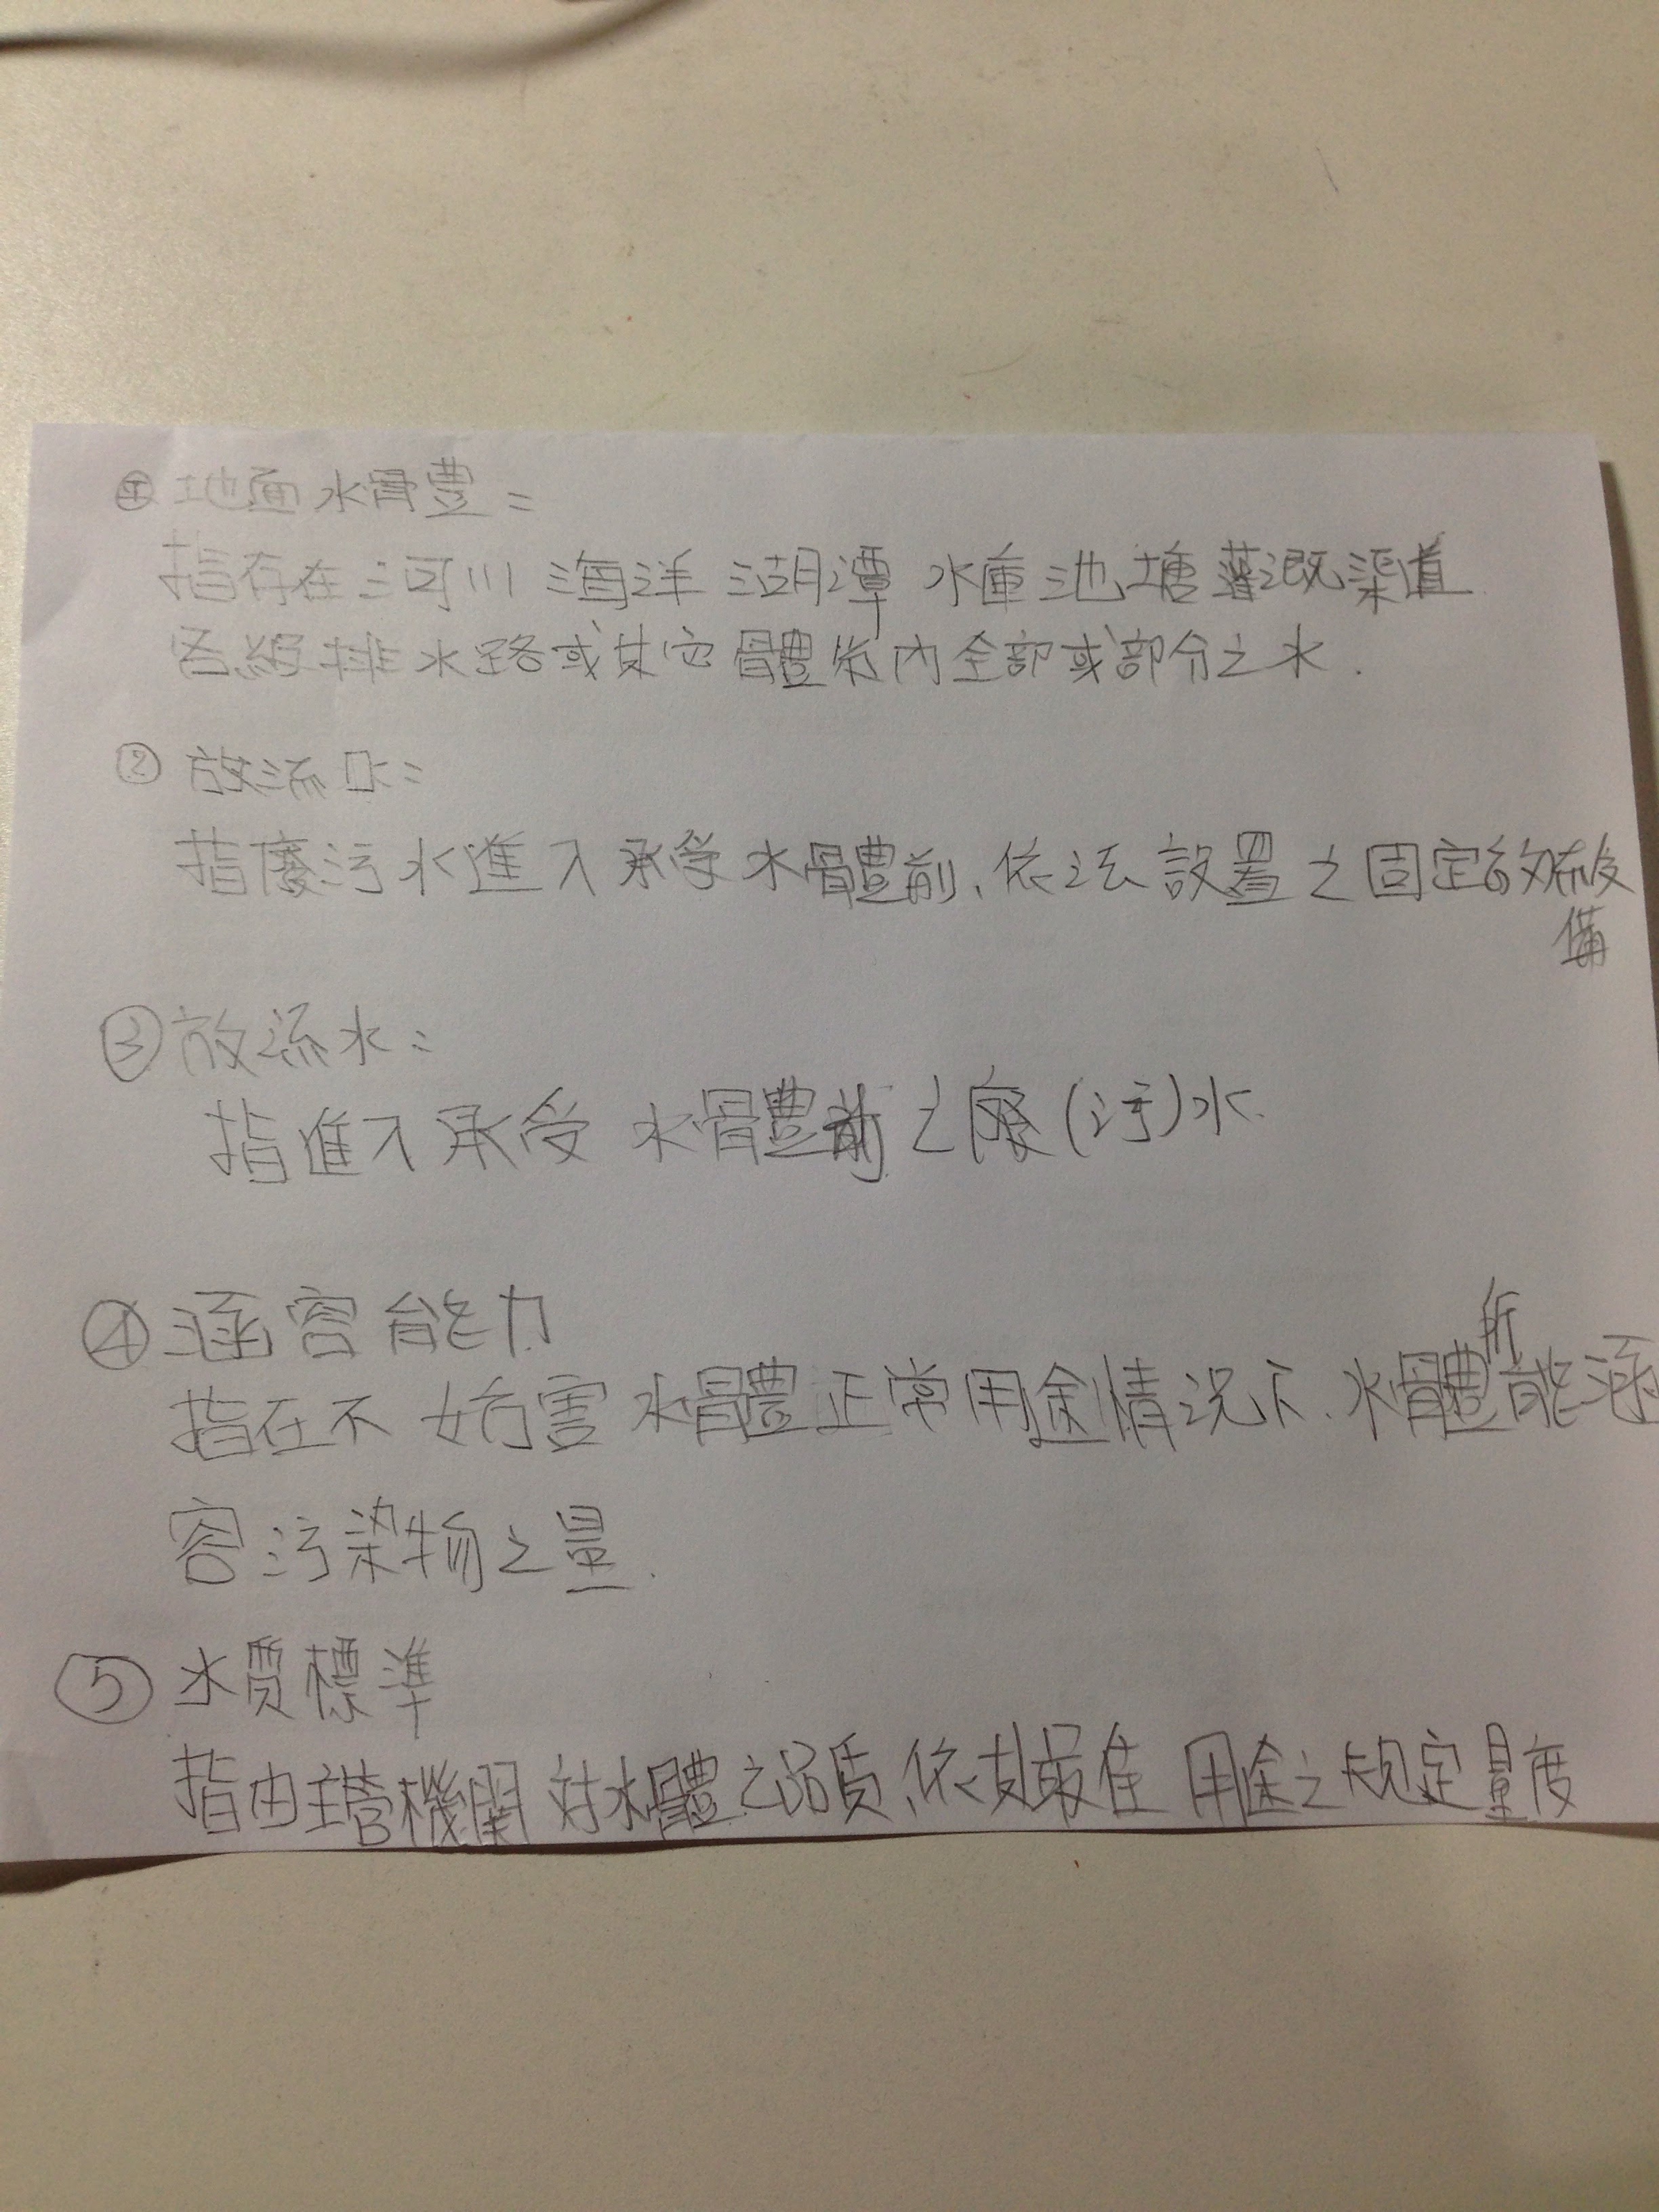 ① 地面水體：
指存在河川海洋湖潭水庫池塘灌溉渠道
各級排水路或其它體系內全部或部分之水.
② 放流口：
指廢污水進入承受水體前、依法設置之固定放流設
備
③ 放流水：
指進入承受水體前之廢(污)水.
④ 涵容能力
指在不妨害水體正常用途情況下、水體所能涵
容污染物之量.
⑤ 水質標準
指由主管機關對水體之品質、依其最佳用途之規定量度